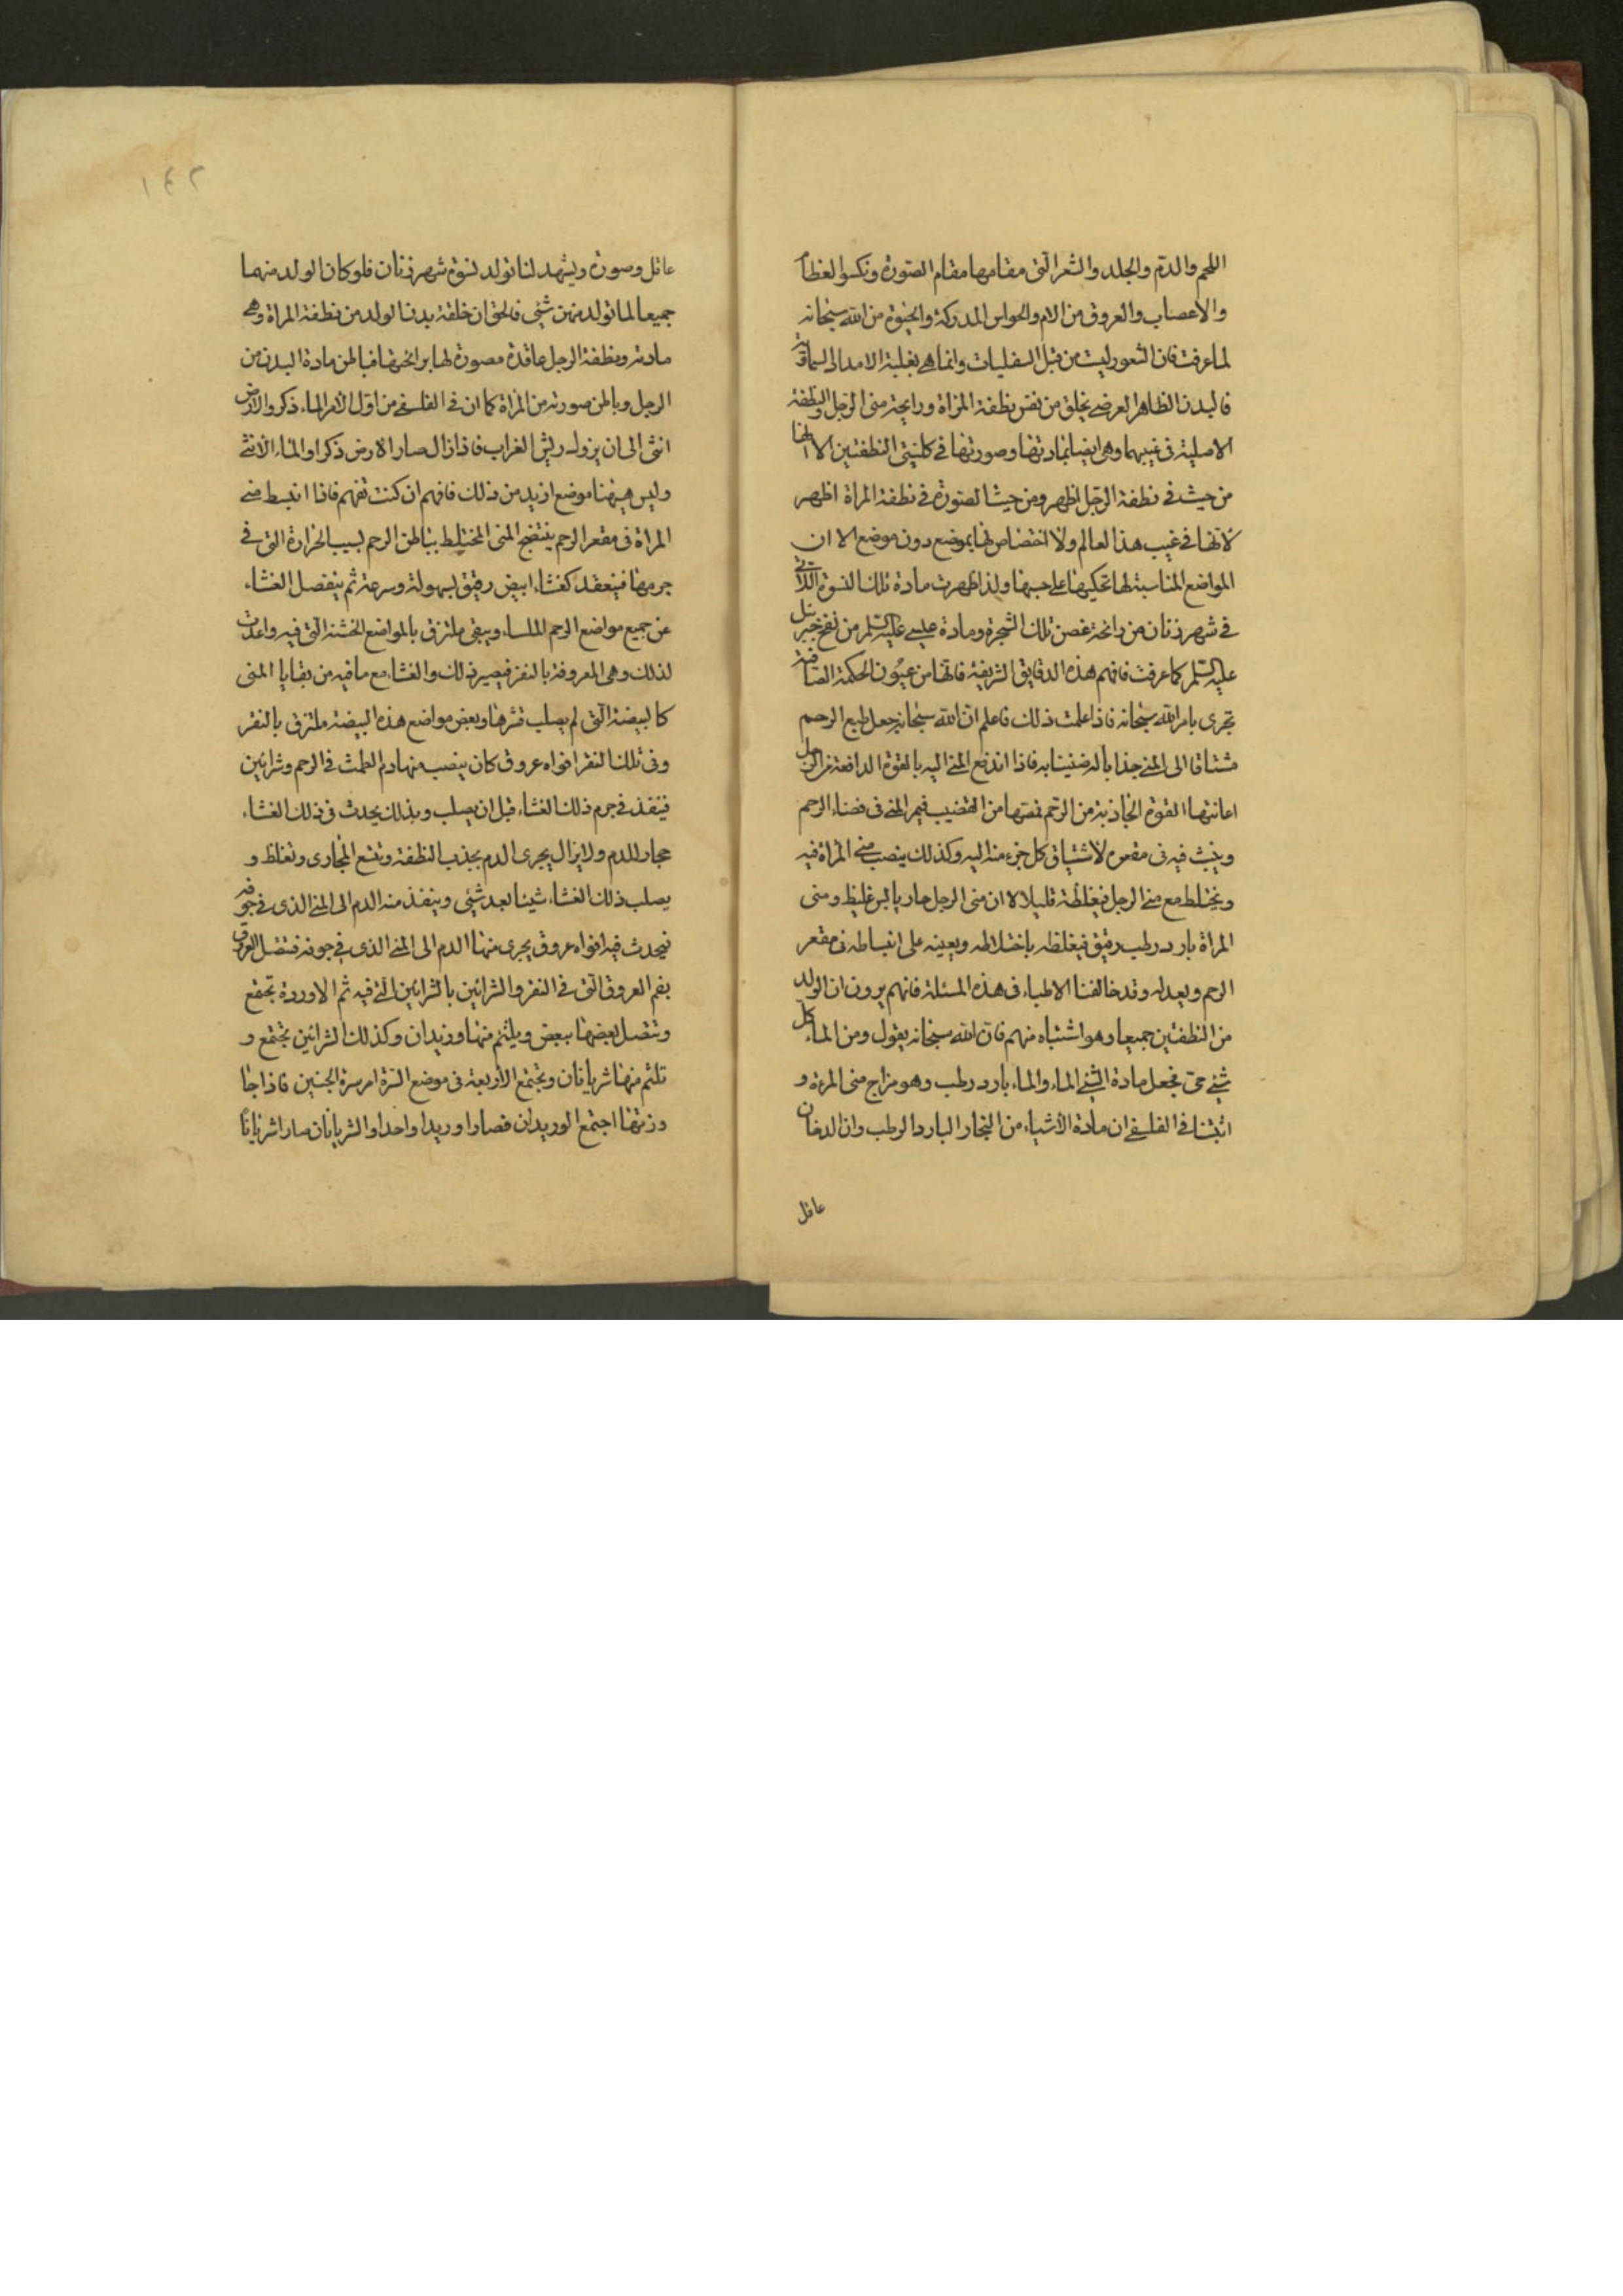 اللحم والدم والجلد والشعر التى مقامها مقام الصورة وتكسوا لعظام
والاعصاب والعروق من الام والحواس المدركة والحيوة من الله سبحانه
لما عرفت فان الشعور ليت من قبل السفليات وانما هى بغلبة الامداد السماوية
فالبدن الظاهر العرضى يخلق من نفس نطفة المرأة ورايحة منى الرجل والنطفة
الاصلية فى غيبهما وهى ايضا بمادتها وصورتها فى كليتى النطفتين الا انها
من حيث فى نطفة الرجل اظهر ومن حيث الصورة فى نطفة المراة اظهر
لانها فى غيب هذا العالم ولا اختصاص لها بموضع دون موضع الا ان
المواضع المناسبة لها تحكيها على حسبها ولذا ظهرت مادة تلك النسوة اللاتى
فى شهر زنان من رائحة غصن تلك الشجرة ومادة عيسى عليه السلم من نفخ جبرئيل
عليه السلم كما عرفت فافهم هذه الدقايق الشريفة فانها من عيون الحكمة الصافية
تجرى بامر الله سبحانه فاذا علمت ذلك فاعلم ان الله سبحانه جعل طبع الرحم
مشتاقا الى المنى جذابا له ضنينا به فاذا اندفع المنى اليه بالقوة الدافعة من الرجل
اعانتها القوة الجاذبة من الرحم تمصها من القضيب فيمر المنى فى فضاء الرحم
وينبث فيه فى مقعره لاشتياق كل جزء منه اليه وكذلك ينصب منى المراة فيه
ويختلط مع منى الرجل فيغلظه قليلا لان منى الرجل حار يابس غليظ ومنى
المراة بارد رطب رقيق فيغلظه باختلاطه ويعينه على انبساطه فى مقعر
الرحم ويعدله وقد خالفنا الاطباء فى هذه المسئلة فانهم يرون ان الولد
من النطفتين جميعا وهو اشتباه منهم فان الله سبحانه يقول ومن الماء كل
شئ حى فجعل مادة الشئ الماء والماء بارد رطب وهو مزاج منى المرءة و
اثبتنا فى الفلسفى ان مادة الاشياء من البخار البارد الرطب وان الدخان
عاقل
١٤٢
عاقل وصورة ويشهد لنا تولد نسوة شهر زنان فلو كان الولد منهما
جميعا لما تولد منهن شئى فالحق ان خلقة بدن الولد من نطفة المراة وهى
مادته ونطفة الرجل عاقدة مصورة لها برائحتها فباطن مادة البدن من
الرجل وباطن صورته من المراة كما ان فى الفلسفى من اول الامر الماء ذكر والارض
انثى الى ان يزول ريش الغراب فاذا زال صار الارض ذكرا والماء الانثى
وليس هيهنا موضع ازيد من ذلك فافهم ان كنت تفهم فاذا انبسط منى
المراة فى مقعر الرحم ينتضج المنى المختلط بباطن الرحم لسبب الحرارة التى فى
جرمها فينعقد كغشاء ابيض رقيق بسهولة وسرعة ثم ينفصل الغشاء
عن جميع مواضع الرحم الملساء ويبقى ملتزق بالمواضع الخشنة التى فيه واعدت
لذلك وهى المعروفة بالنقر فيصير ذلك والغشاء مع ما فيه من بقايا المنى
كالبيضة التى لم يصلب قشرها وبعض مواضع هذه البيضة ملتزق بالنقر
وفى تلك النقر افواه عروق كان ينصب منها دم الطمث فى الرحم وشرائين
فينفذ فى جرم ذلك الغشاء قبل ان يصلب وبذلك يحدث فى ذلك الغشاء
مجار للدم ولا يزال يجرى الدم بجذب النطفة وتتسع المجارى وتغلظ و
يصلب ذلك الغشاء شيئا بعد شئى وينفذ منه الدم الى المنى الذى فى جوفه
فيحدث فيه افواه عروق يجرى منها الدم الى المنى الذى فى جوفه فتتصل العروق
بفم العروق التى فى النقر والشرائين بالشرائين التى فيه ثم الاوردة تجمع
وتتصل بعضها ببعض ويلتئم منها وريدان وكذلك الشرائين تجتمع و
تلتئم منها شريانان وتجتمع الاربعة فى موضع السرة امر سرة الجنين فاذا جا
وزتها اجتمع الوريدان فصارا وريدا واحدا والشريانان صارا شريانا